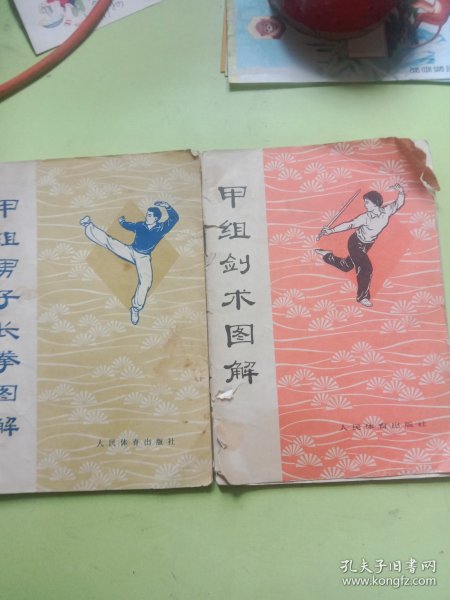 甲组男子长拳图解
人民体育出版社
甲组剑术图解
人民体育出版社
孔夫子旧书网
www.kongfz.com